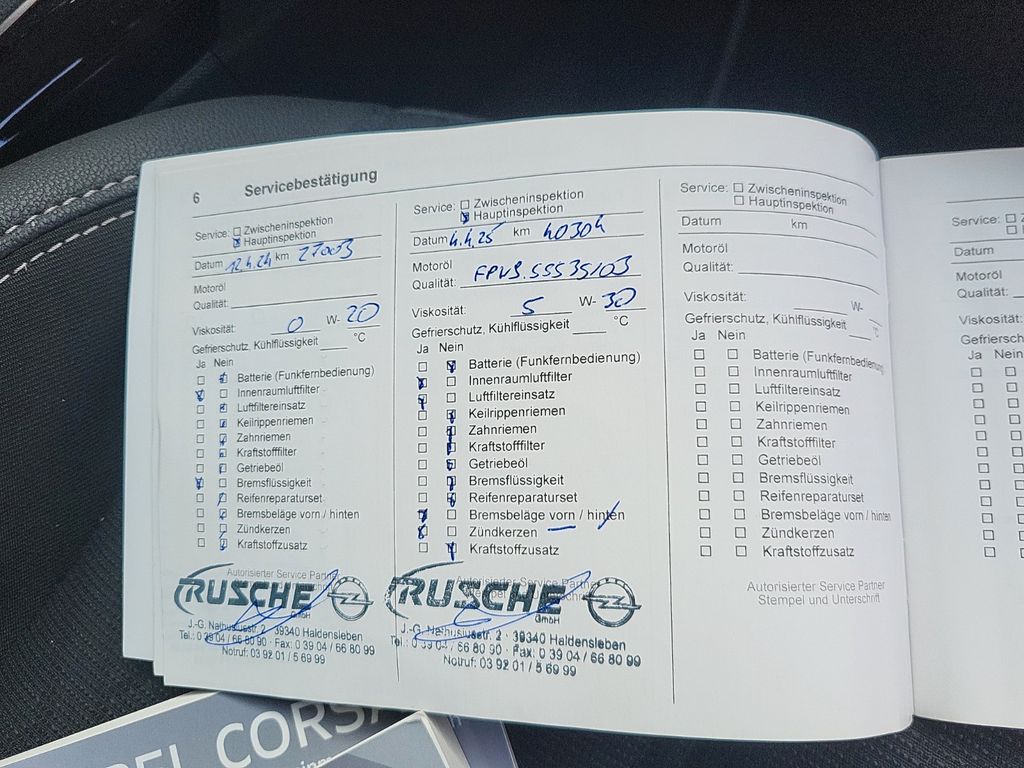 6 Servicebestätigung
Service: Zwischeninspektion
Hauptinspektion
Datum 12.4.24 km 27003
Motoröl
Qualität:
Viskosität: 0 W- 20
Gefrierschutz, Kühlflüssigkeit °C
Ja Nein
Batterie (Funkfernbedienung)
Innenraumluftfilter
Luftfiltereinsatz
Keilrippenriemen
Zahnriemen
Kraftstofffilter
Getriebeöl
Bremsflüssigkeit
Reifenreparaturset
Bremsbeläge vorn / hinten
Zündkerzen
Kraftstoffzusatz
Autorisierter Service Partner
RUSCHE
GmbH
J.-G. Nathusiusstr. 2 · 39340 Haldensleben
Tel.: 0 39 04 / 66 80 90 · Fax: 0 39 04 / 66 80 99
Notruf: 03 92 01 / 5 69 99
Service: Zwischeninspektion
Hauptinspektion
Datum 4.4.25 km 40304
Motoröl
Qualität: FPV9.55535/03
Viskosität: 5 W- 30
Gefrierschutz, Kühlflüssigkeit °C
Ja Nein
Batterie (Funkfernbedienung)
Innenraumluftfilter
Luftfiltereinsatz
Keilrippenriemen
Zahnriemen
Kraftstofffilter
Getriebeöl
Bremsflüssigkeit
Reifenreparaturset
Bremsbeläge vorn / hinten
Zündkerzen
Kraftstoffzusatz
Autorisierter Service Partner
Stempel und Unterschrift
RUSCHE
GmbH
J.-G. Nathusiusstr. 2 · 39340 Haldensleben
Tel.: 0 39 04 / 66 80 90 · Fax: 0 39 04 / 66 80 99
Notruf: 03 92 01 / 5 69 99
Service: Zwischeninspektion
Hauptinspektion
Datum km
Motoröl
Qualität:
Viskosität: W-
Gefrierschutz, Kühlflüssigkeit °C
Ja Nein
Batterie (Funkfernbedienung)
Innenraumluftfilter
Luftfiltereinsatz
Keilrippenriemen
Zahnriemen
Kraftstofffilter
Getriebeöl
Bremsflüssigkeit
Reifenreparaturset
Bremsbeläge vorn / hinten
Zündkerzen
Kraftstoffzusatz
Autorisierter Service Partner
Stempel und Unterschrift
Service:
Datum
Motoröl
Qualität:
Viskosität:
Gefriersch
Ja Nein
CORSA